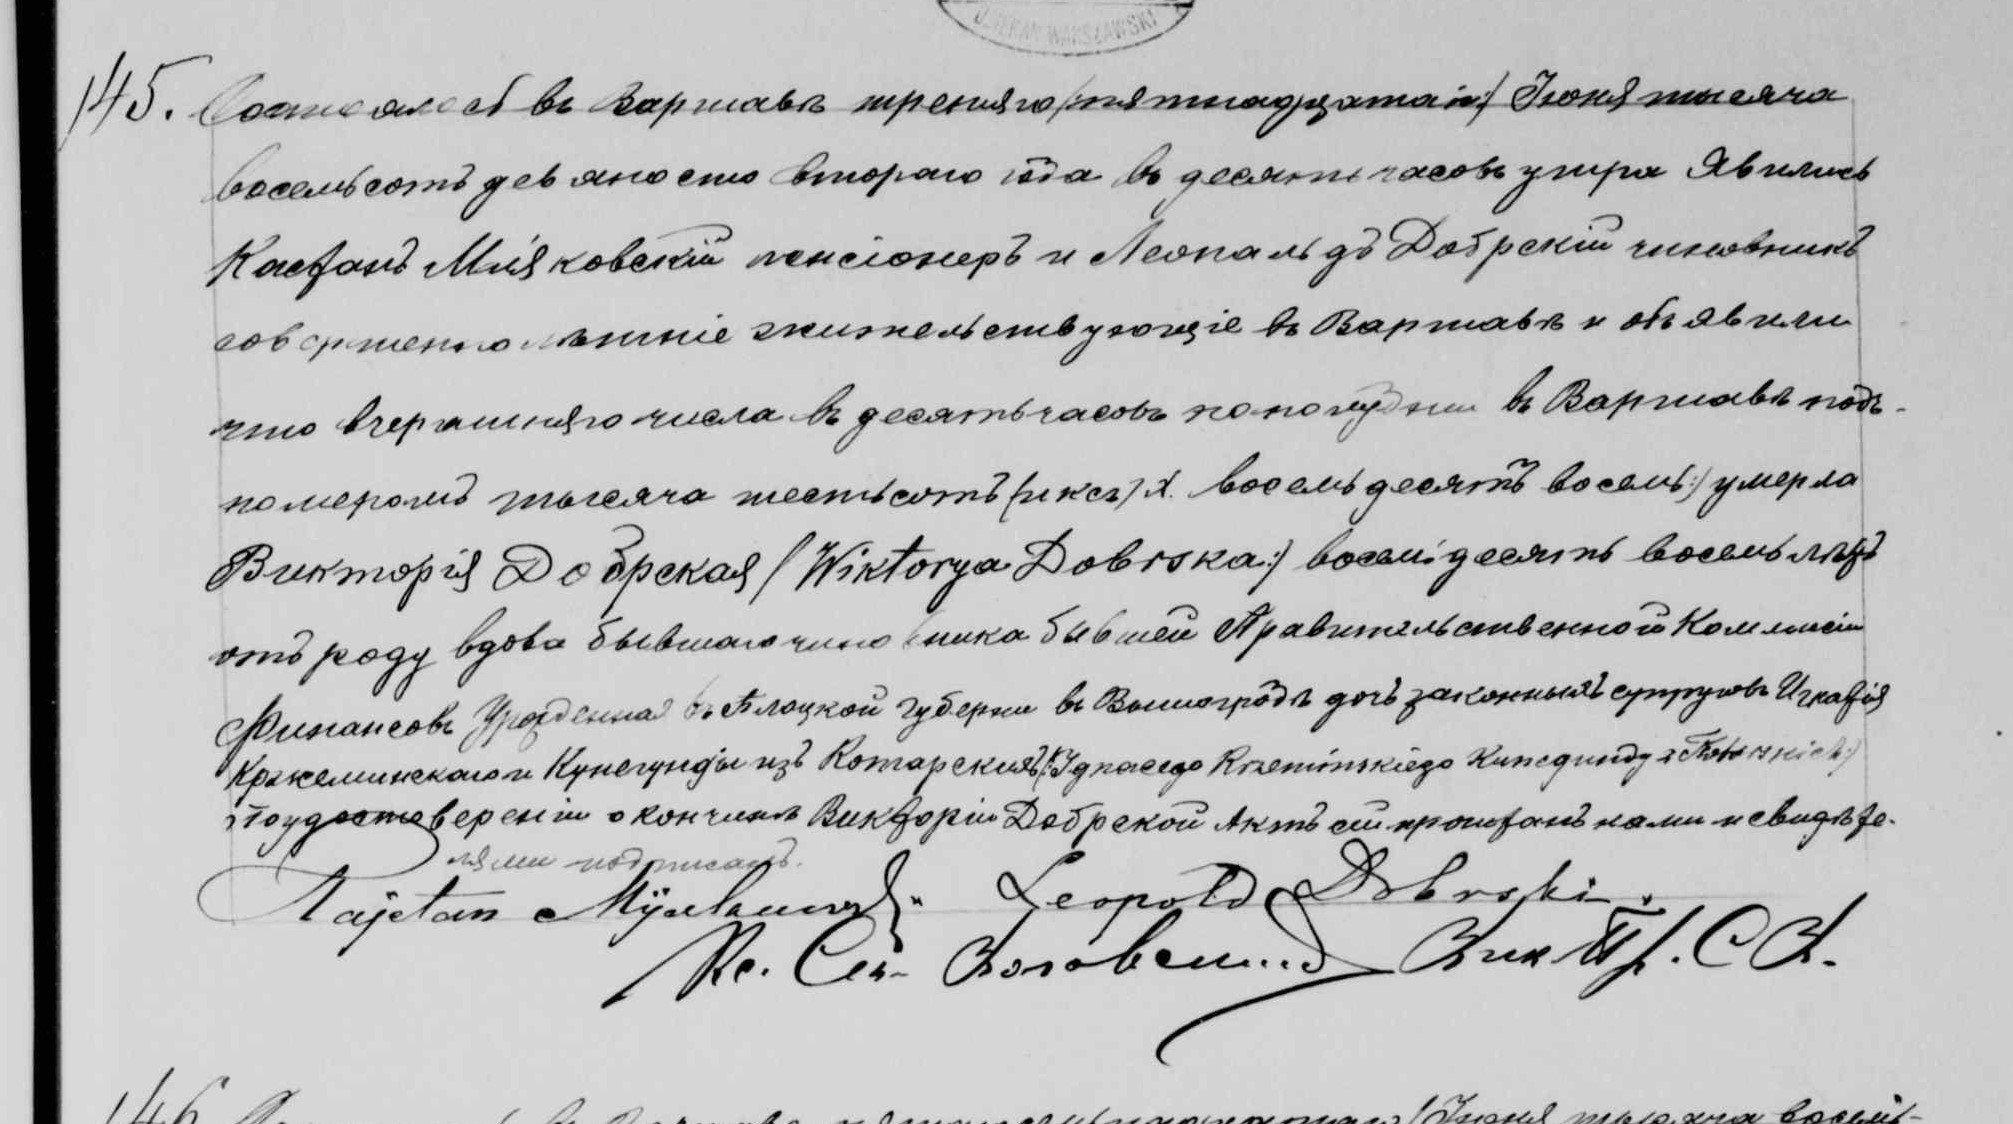 WARSZAWSKI
145. Состоялось въ Варшавѣ третяго /пятнадцатаго:/ Іюня тысяча
восемьсотъ девяносто втораго года въ десять часовъ утра Явились
Каетанъ Міяковскій пенсіонеръ и Леопальдъ Добрскій чиновникъ
совершеннолѣтніе жительствующіе въ Варшавѣ и объявили
что вчерашняго числа въ десять часовъ пополудни въ Варшавѣ подъ
номеромъ тысяча шестьсотъ (иксъ) X. восемьдесятъ восемь:/ умерла
Викторія Добрская /Wiktorya Dobrska:/ восемьдесятъ восемь лѣтъ
отъ роду вдова бывшаго чиновника бывшей Правительственной Коммисіи
Финансовъ Урожденная въ Плоцкой губерніи въ Вышогродѣ дочь законныхъ супруговъ Игнатія
Кржеминскаго и Кунегунды изъ Котарскихъ /:Ignacego Krzemińskiego Kunegundy z
По удостовереніи о кончинѣ Викторіи Добрской Актъ сей прочитанъ нами и свидѣте-
лями подписанъ.
Kajetan Leopold Dobrski
Кс.
146 Іюня тысяча восемь-